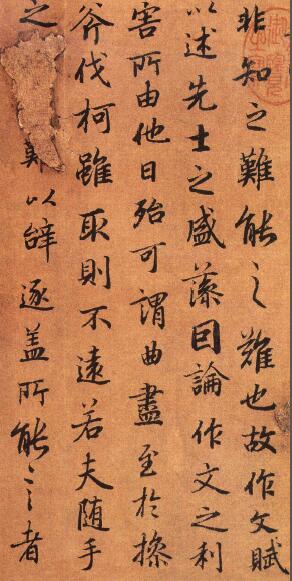 非知之難能之難也故作文賦
以述先士之盛藻因論作文之利
害所由他日殆可謂曲盡至於操
斧伐柯雖取則不遠若夫随手
之難以辭逐盖所能言者